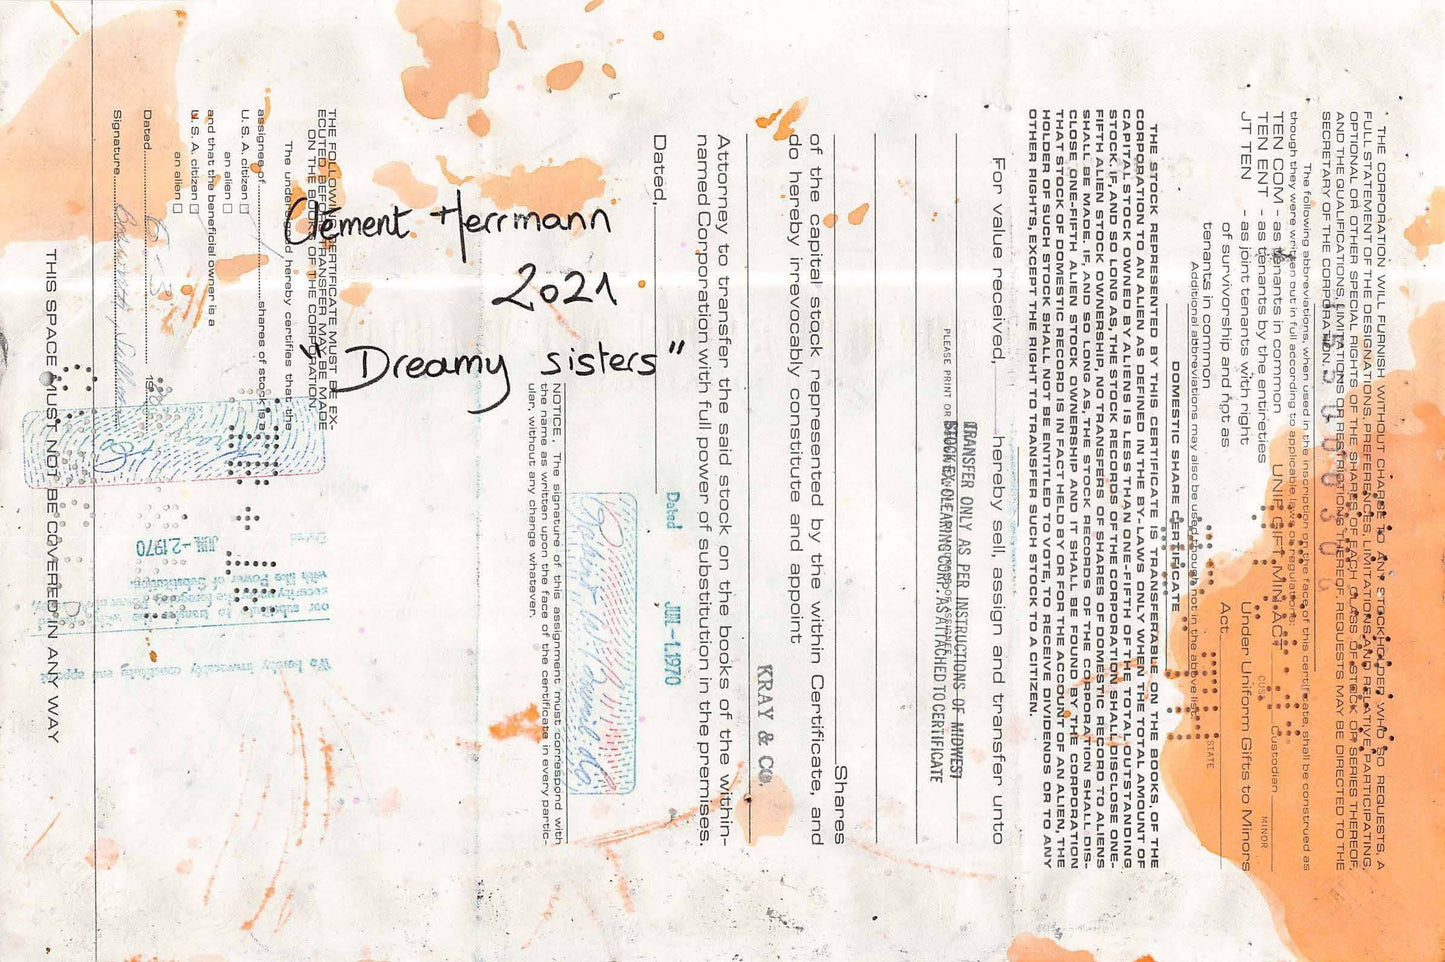 Clément Herrmann
2021
"Dreamy sisters"
THE CORPORATION WILL FURNISH WITHOUT CHARGE TO ANY STOCKHOLDER WHO SO REQUESTS, A
FULL STATEMENT OF THE DESIGNATIONS, PREFERENCES, LIMITATIONS AND RELATIVE PARTICIPATING,
OPTIONAL OR OTHER SPECIAL RIGHTS OF THE SHARES OF EACH CLASS OF STOCK OR SERIES THEREOF,
AND THE QUALIFICATIONS, LIMITATIONS OR RESTRICTIONS THEREOF. REQUESTS MAY BE DIRECTED TO THE
SECRETARY OF THE CORPORATION.
The following abbreviations, when used in the inscription on the face of this certificate, shall be construed as
though they were written out in full according to applicable laws or regulations:
TEN COM - as tenants in common UNIF GIFT MIN ACT Custodian
CUST MINOR
TEN ENT - as tenants by the entireties Under Uniform Gifts to Minors
JT TEN - as joint tenants with right
of survivorship and not as Act
tenants in common STATE
Additional abbreviations may also be used though not in the above list.
DOMESTIC SHARE CERTIFICATE
THE STOCK REPRESENTED BY THIS CERTIFICATE IS TRANSFERABLE ON THE BOOKS OF THE
CORPORATION TO AN ALIEN AS DEFINED IN THE BY-LAWS ONLY WHEN THE TOTAL AMOUNT OF
CAPITAL STOCK OWNED BY ALIENS IS LESS THAN ONE-FIFTH OF THE TOTAL OUTSTANDING
STOCK. IF, AND SO LONG AS, THE STOCK RECORDS OF THE CORPORATION SHALL DISCLOSE ONE-
FIFTH ALIEN STOCK OWNERSHIP, NO TRANSFERS OF SHARES OF DOMESTIC RECORD TO ALIENS
SHALL BE MADE. IF, AND SO LONG AS, THE STOCK RECORDS OF THE CORPORATION SHALL DIS-
CLOSE ONE-FIFTH ALIEN STOCK OWNERSHIP AND IT SHALL BE FOUND BY THE CORPORATION
THAT STOCK OF DOMESTIC RECORD IS IN FACT HELD BY OR FOR THE ACCOUNT OF AN ALIEN, THE
HOLDER OF SUCH STOCK SHALL NOT BE ENTITLED TO VOTE, TO RECEIVE DIVIDENDS OR TO ANY
OTHER RIGHTS, EXCEPT THE RIGHT TO TRANSFER SUCH STOCK TO A CITIZEN.
For value received, hereby sell, assign and transfer unto
TRANSFER ONLY AS PER INSTRUCTIONS OF MIDWEST
STOCK EX. CLEARING CORP. AS ATTACHED TO CERTIFICATE
PLEASE PRINT OR
Shares
of the capital stock represented by the within Certificate, and
do hereby irrevocably constitute and appoint
KRAY & CO.
Attorney to transfer the said stock on the books of the within-
named Corporation with full power of substitution in the premises.
Dated, Dated JUN -1.1970
NOTICE. The signature of this assignment must correspond with
the name as written upon the face of the certificate in every partic-
ular, without any change whatever.
THE FOLLOWING CERTIFICATE MUST BE EX-
ECUTED BEFORE TRANSFER MAY BE MADE
ON THE BOOKS OF THE CORPORATION
The undersigned hereby certifies that the
assignee of shares of stock is a
U.S.A. citizen
an alien
and that the beneficial owner is a
U.S.A. citizen
an alien
Dated 19
Signature
We hereby irrevocably constitute and appoint
JUN -2.1970
THIS SPACE MUST NOT BE COVERED IN ANY WAY